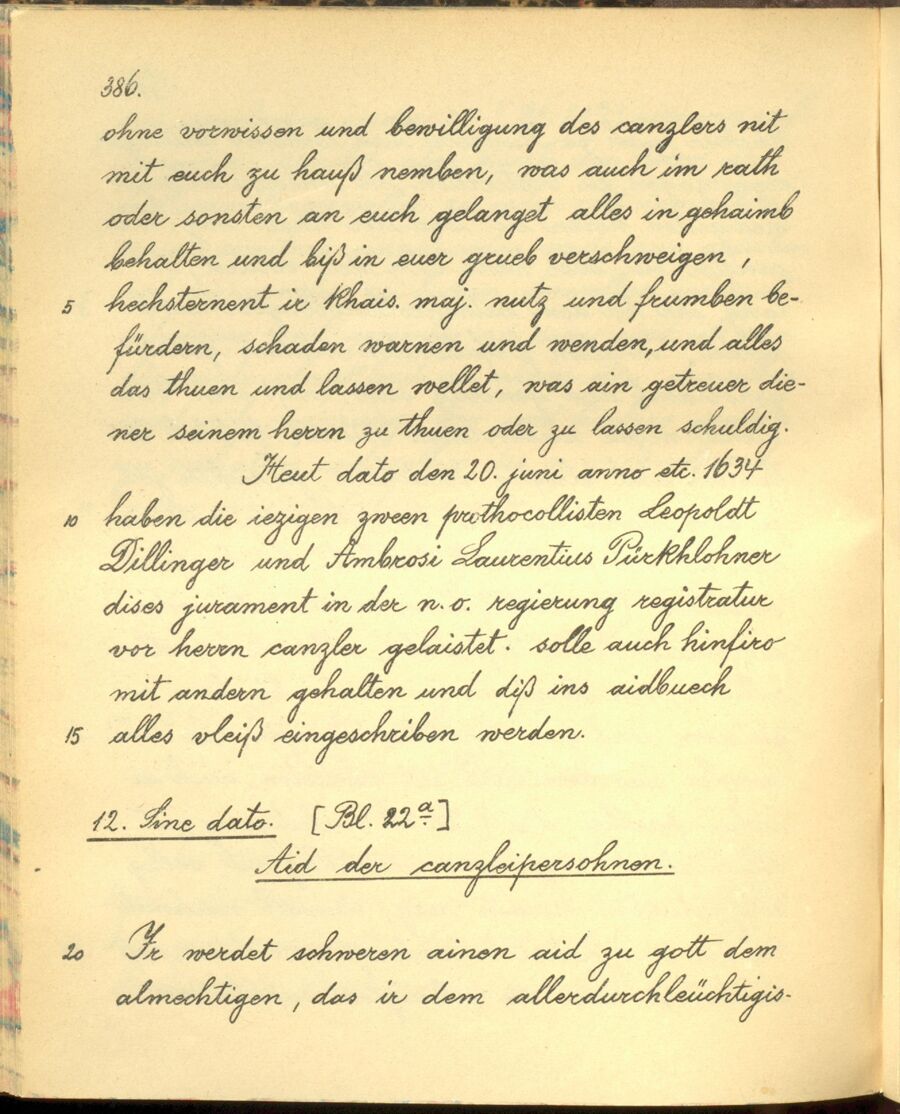 386.
ohne vorwissen und bewilligung des canzlers nit
mit euch zu hauß nemben, was auch im rath
oder sonsten an euch gelanget alles in gehaimb
behalten und biß in euer grueb verschweigen,
5 hechsternent ir khais. maj. nutz und frumben be-
fürdern, schaden warnen und wenden, und alles
das thuen und lassen wellet, was ain getreuer die-
ner seinem herrn zu thuen oder zu lassen schuldig.
Heut dato den 20. juni anno etc. 1634
10 haben die iezigen zween prothocollisten Leopoldt
Dillinger und Ambrosi Laurentius Pürkhlohner
dises jurament in der n. o. regierung registratur
vor herrn canzler gelaistet. solle auch hinfiro
mit andern gehalten und diß ins aidbuech
15 alles vleiß eingeschriben werden.
12. Sine dato. [Bl. 22a]
Aid der canzleipersohnen.
20 Ir werdet schweren ainen aid zu gott dem
almechtigen, das ir dem allerdurchleüchtigis-